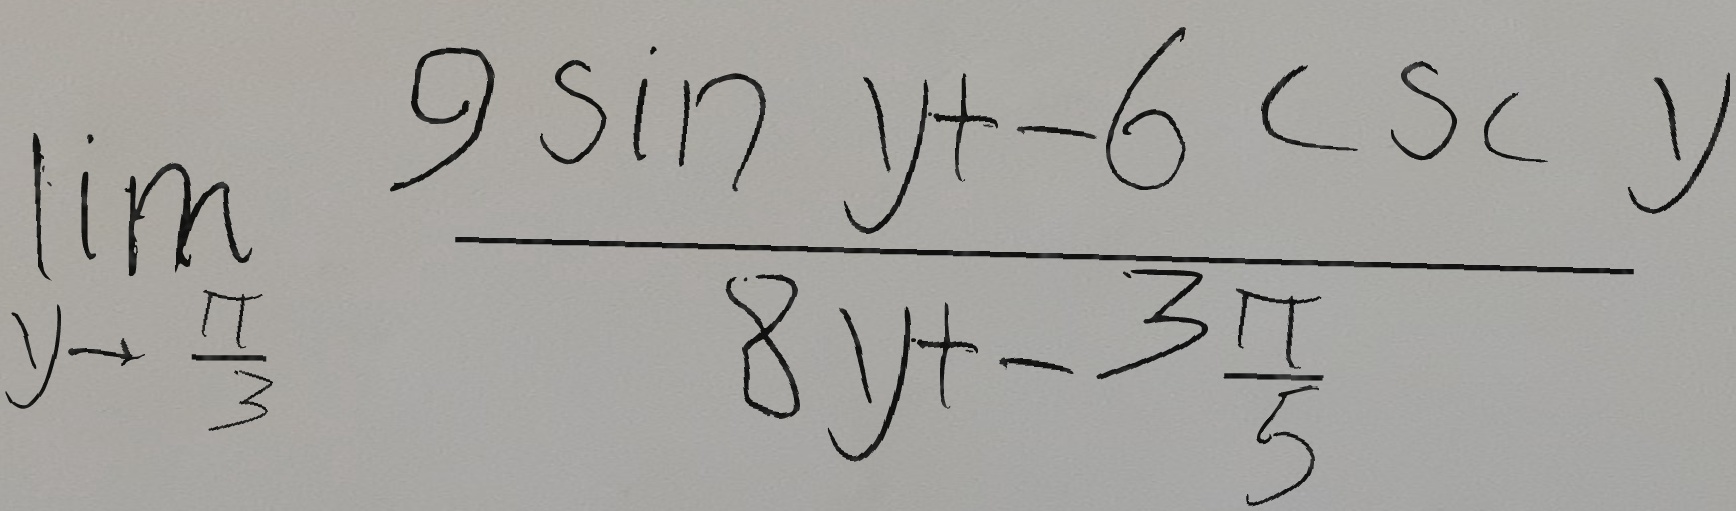 \lim_{y \to \frac{\pi}{3}} \frac{9 \sin y + -6 \csc y}{8y + -3 \frac{\pi}{5}}